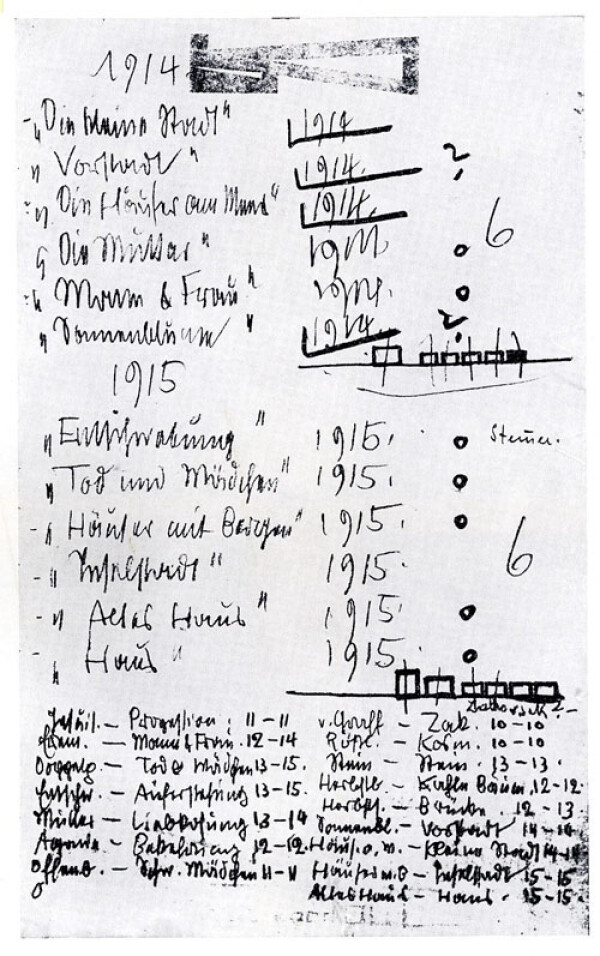 1914
"Die kleine Stadt" 1914
"Vorstadt" 1914. ?
"Die Häuser am Meer" 1914. 6
"Die Mutter" 1914. o
"Mann & Frau" 1914. o
"Sonnenblume" 1914. ?
1915
"Entschwebung" 1915. o Steiner.
"Tod und Mädchen" 1915. o
"Häuser mit Bergen" 1915. o
"Inselstadt" 1915. 6
"Altes Haus" 1915. o
"Haus" 1915. o
Jesuit. – Prozession : 11–11 v. Graff – Zak. 10–10
– Mann & Frau. 12–14 – Kosm. 10–10
Doppelg. – Tod & Mädchen 13–15. Stein – Stein. 13–13.
Entschw. – Auferstehung 13–15. Herbstb. – Kahle Bäume. 12–12.
Mutter – Liebkosung 13–14 Herbst. – Brücke. 12–13
Agonie – Bekehrung 12–12. Sonnenbl. – Vorstadt 14–14
Offenb. – Schw. Mädchen 11–11 Häus. a. m. – Kleine Stadt 14–14
Häuser m. B – Inselstadt 15–15
Altes Haus – Haus. 15–15.